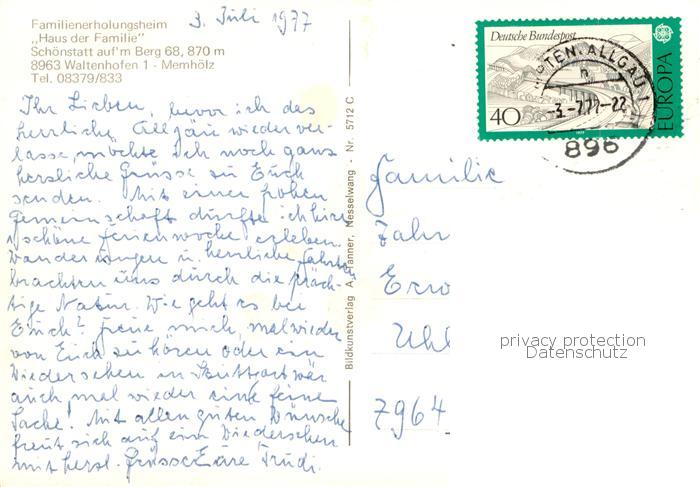 Familienerholungsheim
„Haus der Familie"
Schönstatt auf'm Berg 68, 870 m
8963 Waltenhofen 1 - Memhölz
Tel. 08379/833
3. Juli 1977
Ihr Lieben, bevor ich das
herrliche Allgäu wieder ver-
lasse, möchte ich noch ganz
herzliche Grüsse zu Euch
senden. Mit einer frohen
Gemeinschaft durfte ich hier
1 schöne Ferienwoche erleben.
Wanderungen u. herrliche Fahrten
brachten uns durch die präch-
tige Natur. Wie geht es bei
Euch? Freue mich, mal wieder
von Euch zu hören oder ein
Wiedersehen in Stuttgart wär
auch mal wieder eine feine
Sache! Mit allen guten Wünschen
freut sich auf ein Wiedersehen
mit herzl. Grüsse Eure Trudi.
Bildkunstverlag A. Tanner, Nesselwang - Nr. 5712 C
Deutsche Bundespost
40
EUROPA
TEN, ALLGÄU 1
3.-7.77-22
896
Familie
Zahr
Erw
Uhl
7964
privacy protection
Datenschutz